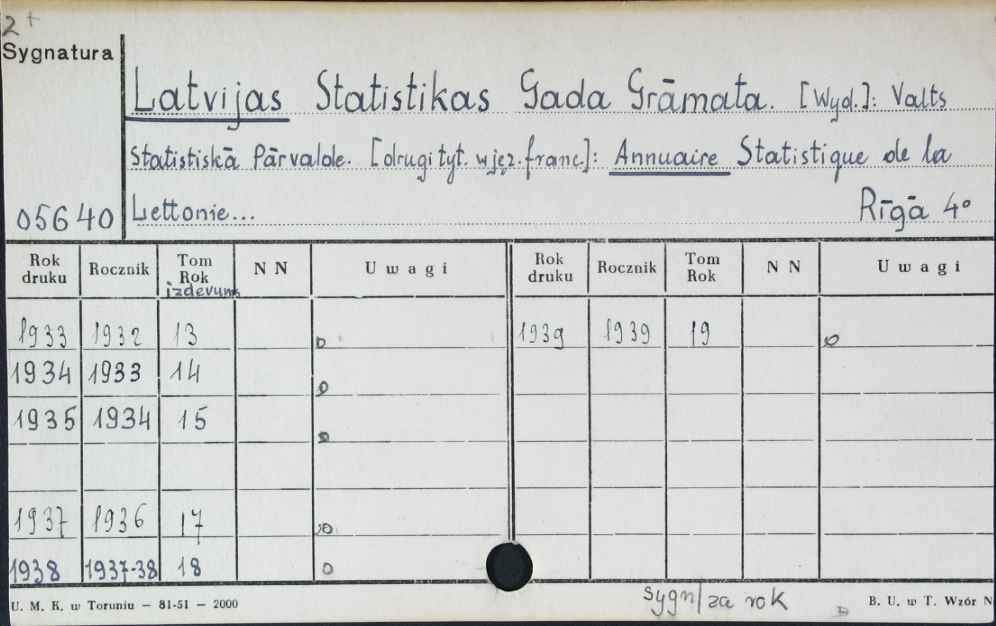 2+
Sygnatura
Latvijas Statistikas Gada Grāmata. [Wyd.]: Valts
Statistiskā Pārvalde. [drugi tyt. w jęz. franc.]: Annuaire Statistique de la
05640 Lettonie... Rīgā 4°
Rok druku Rocznik Tom Rok izdevums N N Uwagi Rok druku Rocznik Tom Rok N N Uwagi
1933 1932 13 o 1939 1939 19 o
1934 1933 14 o
1935 1934 15 o
1937 1936 17 o
1938 1937-38 18 o
sygn/za rok
U. M. K. w Toruniu — 81-51 — 2000 B. U. w T. Wzór N